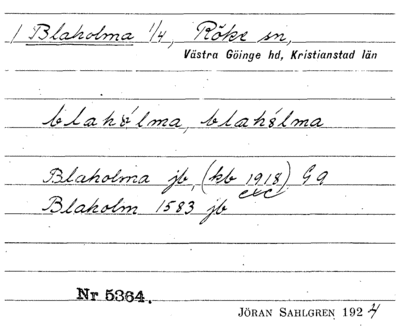 / Blaholma 1/4, Röke sn,
Västra Göinge hd, Kristianstad län
blahólma, blahólma
Blaholma jb, (kb 1918) G9
Blaholm 1583 jb
Nr 5364.
JÖRAN SAHLGREN 1924